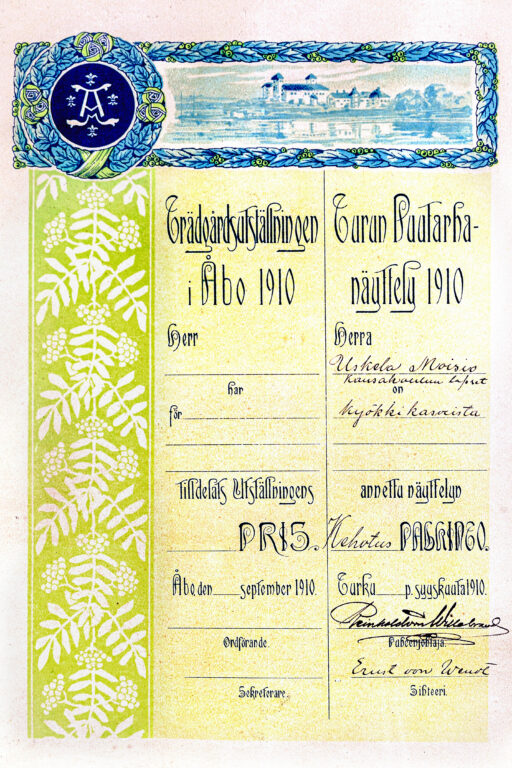 A
Trädgårdsutställningen
i Åbo 1910
Herr
har
för
tilldelats Utställningens
PRIS.
Åbo den september 1910.
Ordförande.
Sekreterare.
Turun Puutarha-
näyttely 1910
Herra
Uskela Moisio
kansakoulun lapset
on
Kyökkikasveista
annettu näyttelyn
Kehotus PALKINTO.
Turku p. syyskuuta 1910.
Reinhold von Willebrand
Puheenjohtaja.
Ernst von Wendt
Sihteeri.